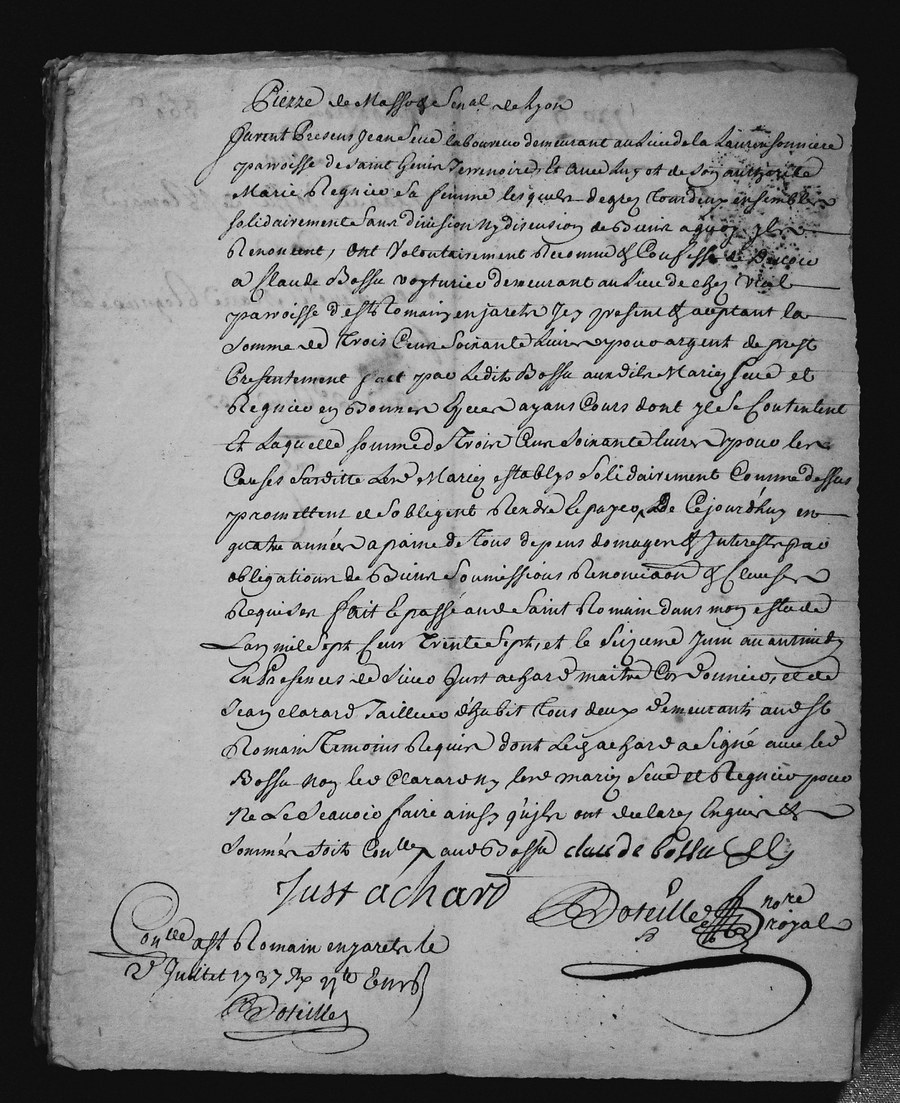 Pierre de Masso & Senal de Lyon
furent Presens Jean Seue laboureur demeurant au Lieu de la
paroisse de Saint Genis Terrenoire, Et avec luy et de son authorité
Marie Regnier sa femme lesquels de grez Tous deux ensemble
solidairement sans division ny discusion de Biens a quoy yls
Renoncent, ont volontairement Reconnu & Confessé de Devoir
a Claude Bossu voyturier demeurant au Lieu de chez Vial
paroisse de st Romain en jarets Jcy present & acceptant la
somme de Trois Cens Soixante Livres pour argent de prest
Presentement fait par Ledit Bossu auxdits Mariez Seue et
Regnier en Bonnes Especes ayans Cours dont yls se Contentent
Et Laquelle somme de Trois Cens Soixante Livres pour les
Causes Susditte Lesd Mariez establys Solidairement Comme dessus
promettent et s'obligent Rendre le payer De Cejourd'huy en
quatre années a paine de Tous depens domages & Interests par
obligations de Biens Soumissions Renonciaon & Clauses
Requises fait et passé aud Saint Romain dans mon estude
Lan mil Sept Cens Trente Sept, et le Seizieme Juin avant midy
En Presences de Sieur Just achard maitre Cordonnier, et de
Jean clarard Tailleur d'habit Tous deux demeurants aud st
Romain Temoins Requis dont Led achard a Signé avec led
Bossu Non led Clarard ny lesd mariez Seue et Regnier pour
Ne Le Scavoir faire ainsy qu'ils ont declarez Enquis &
Sommés Soit Conllé aud Bossu claude bossu
Just achard
Doteille nore
royal
Conllé a st Romain en jarets le
Juillet 1737
Doteille